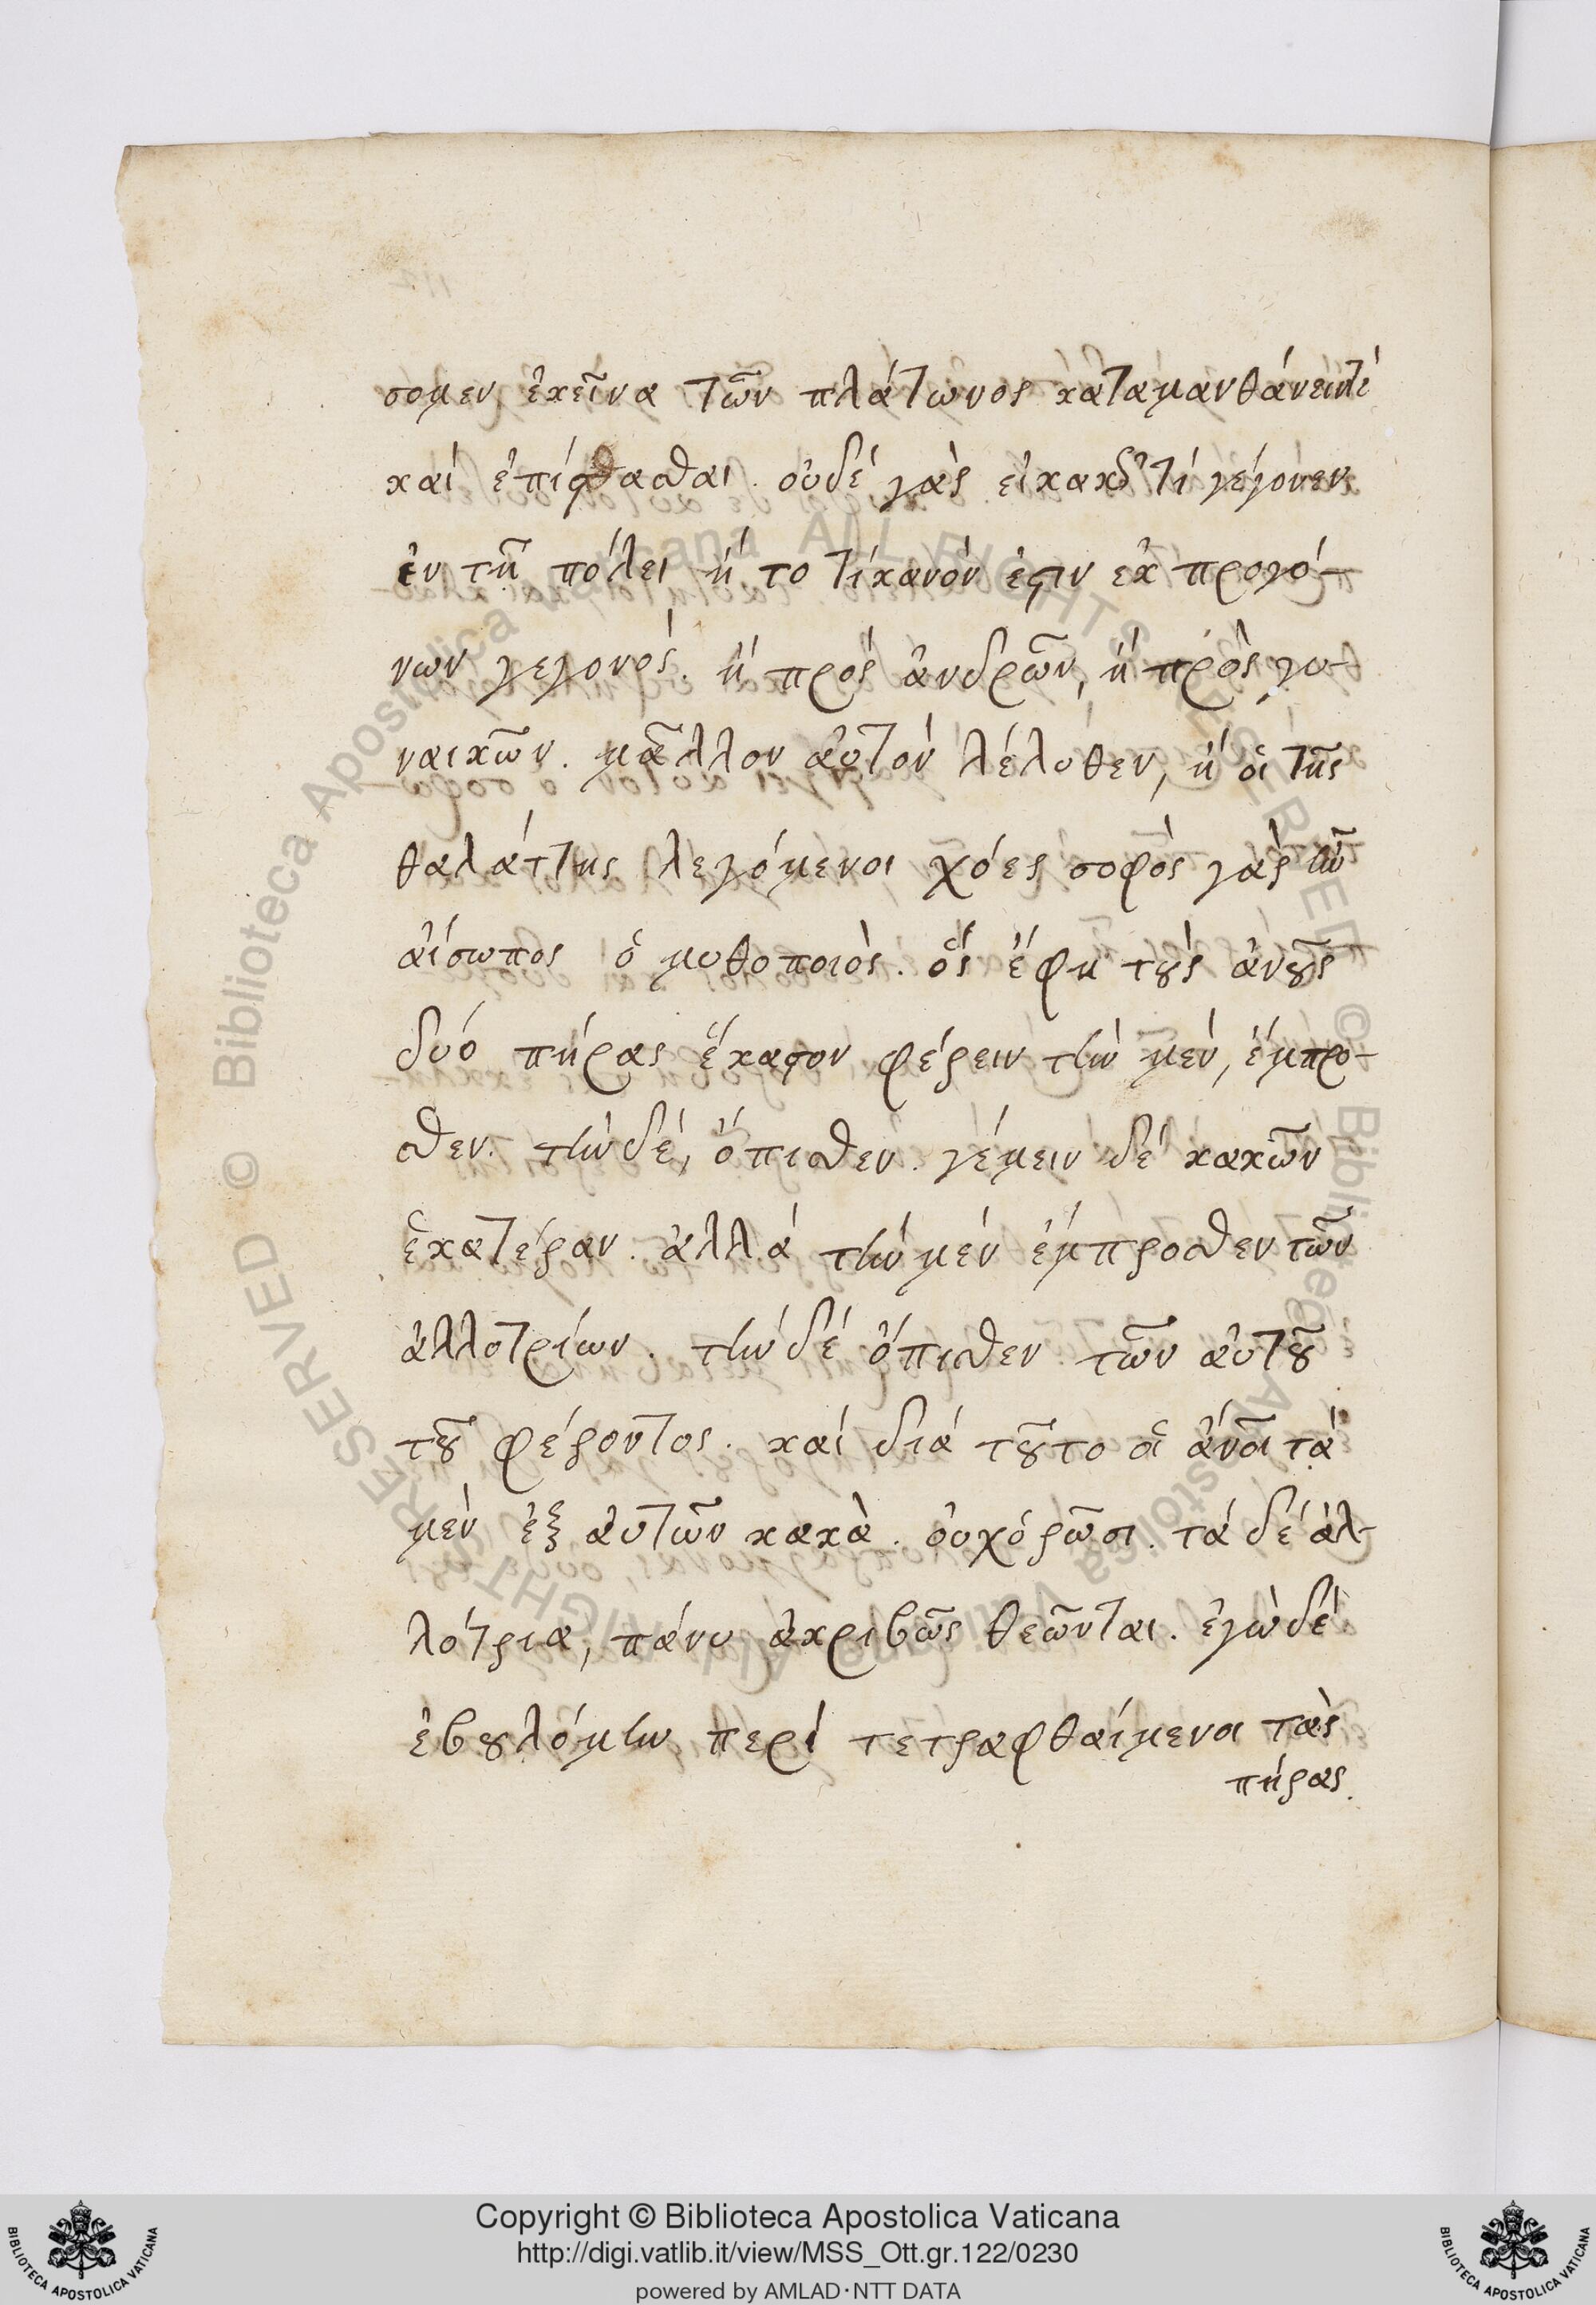 σομεν ἐκεῖνα τῶν πλάτωνος καταμανθάνειν τί
καί ἐπίστασθαι. οὐδέ γὰρ εἰ κακόν τί γέγονεν
ἐν τῆ πόλει ἤ το τίκανόν ἐςιν ἐκ προγό-
νων γεγονρς. ἤ πρός ἀνδρῶν, ἤ πρὸς γυ-
ναικῶν. μᾶλλον ἀυτόν λέλυθεν, ἤ οἱ τῆς
θαλάττης λεγόμενοι χόες σοφὸς γὰρ ἦν
ἀίσωπος ὁ μυθοποιὸς. ὅς ἔφη τȣ̀ς ἀνȣς
δυό πήρας ἕκαςον φέρειν τήν μεν, ἔμπρο-
σθεν. τὴν δέ, ὄπισθεν. γέμειν δέ κακῶν
ἑκατέραν. ἀλλά τήν μέν ἔμπροσθεν τῶν
ἀλλοτρίων. τὴν δέ ὄπισθεν τῶν ἀυτȣ͂
τȣ͂ φέροντος. καί διά τȣ͂το οἱ ἄνοι τὰ
μὲν ἐξ ἀυτῶν κακὰ. ὀυχόρῶσι. τά δέ ἀλ-
λότρια, πάνυ ἀκριβῶς θεῶνται. ἐγὼ δέ
ἐβȣλόμην περί τετραφθαίμενοι τὰς
πήρας.
Copyright © Biblioteca Apostolica Vaticana
http://digi.vatlib.it/view/MSS_Ott.gr.122/0230
powered by AMLAD·NTT DATA
BIBLIOTECA APOSTOLICA VATICANA
BIBLIOTECA APOSTOLICA VATICANA